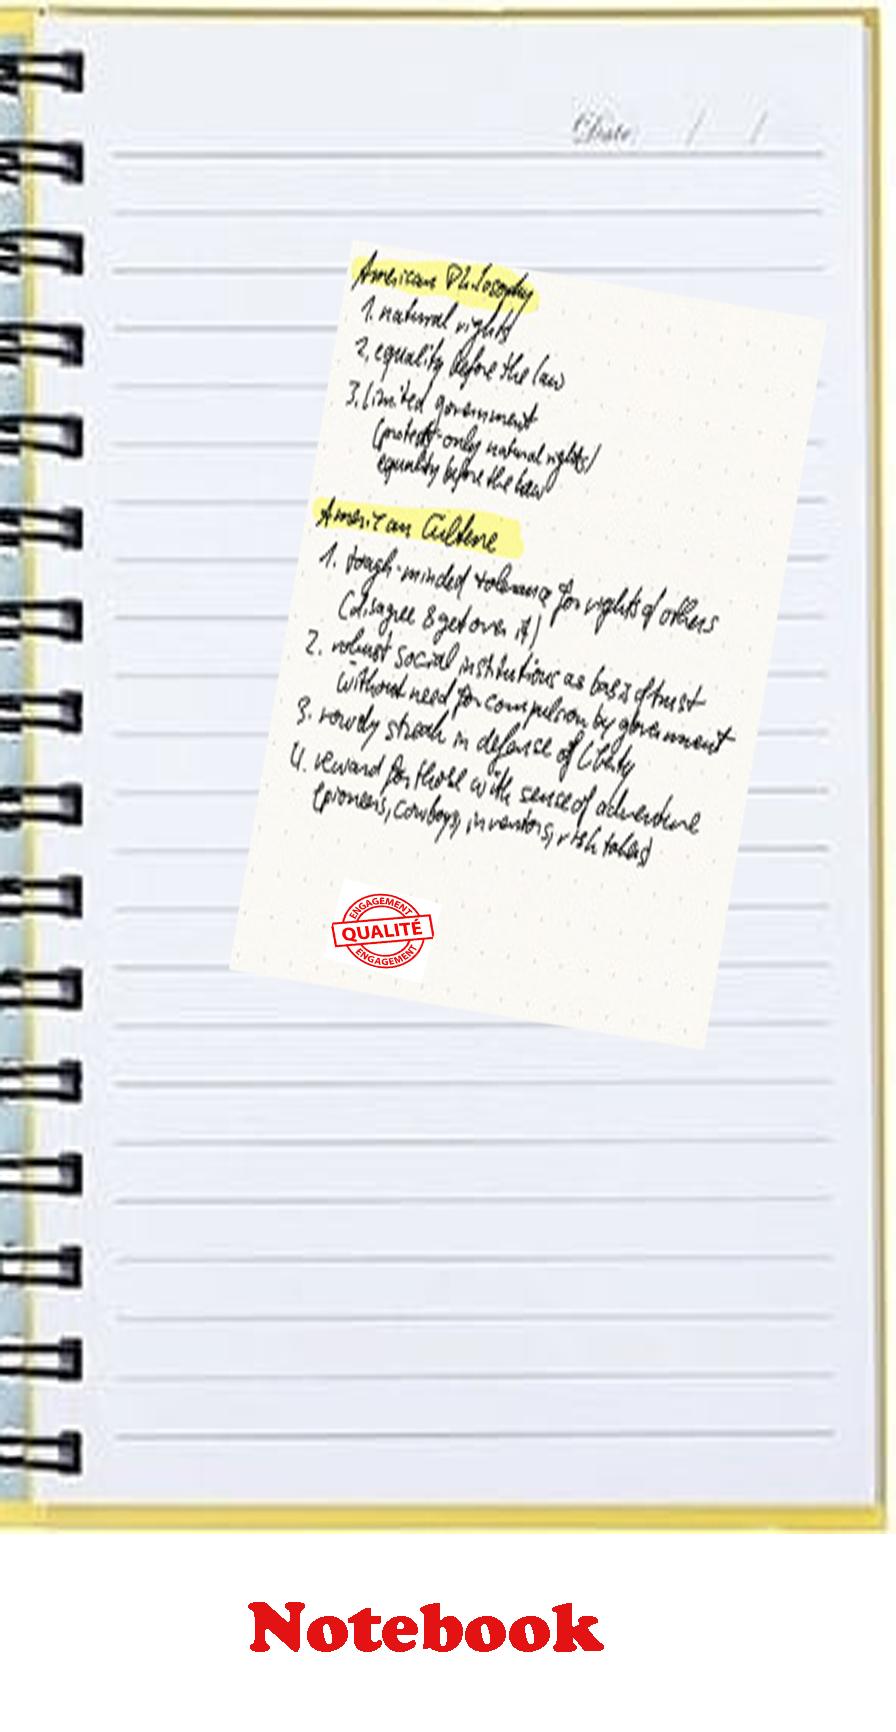 Date: / /
American Philosophy
1. natural rights
2. equality before the law
3. limited government
(protects only natural rights/
equality before the law
American Culture
1. tough-minded tolerance for rights of others
(disagree & get over it)
2. robust social institutions as basis of trust
without need for compulsion by government
3. rowdy streak in defense of liberty
4. reward for those with sense of adventure
(pioneers, cowboys, inventors, risk takers)
ENGAGEMENT
QUALITÉ
ENGAGEMENT
Notebook